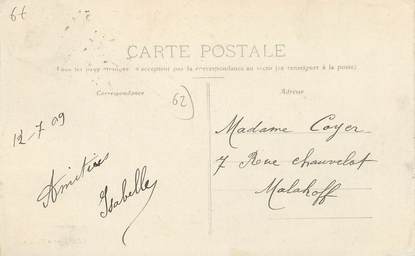 6f
CARTE POSTALE
Tous les pays étrangers n'acceptent pas la correspondance au recto (se renseigner à la poste)
Correspondance
Adresse
62
12-7-09
Amitiés
Isabelle
Madame Coyer
7 Rue chauvelot
Malakoff